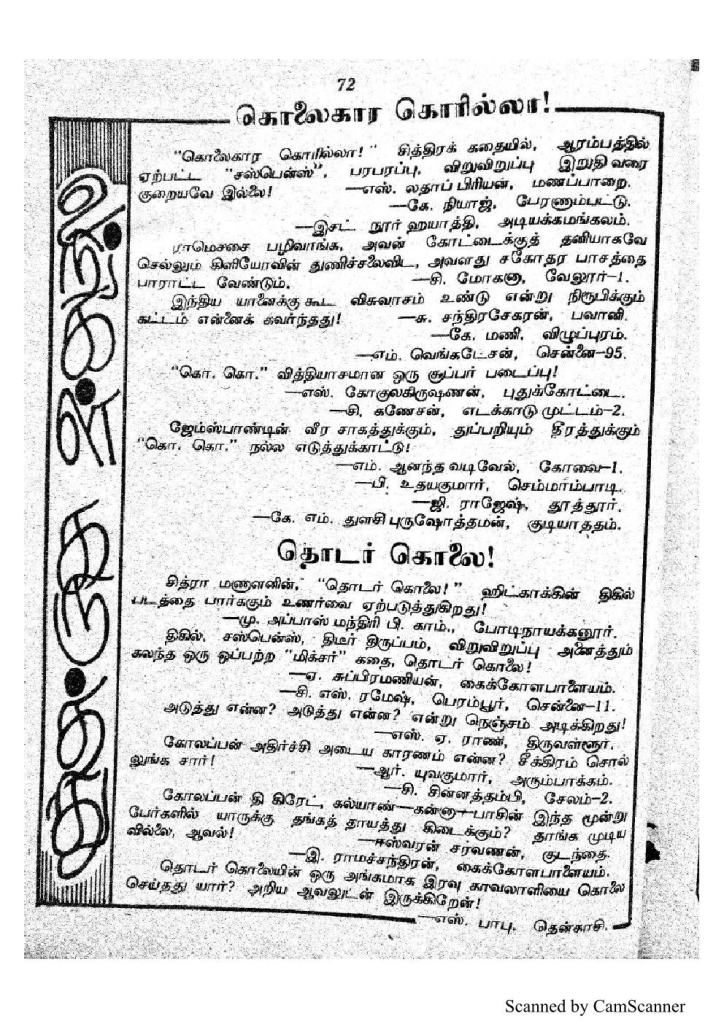 72
கொலைகார கொரில்லா!
"கொலைகார கொரில்லா!" சித்திரக் கதையில், ஆரம்பத்தில்
ஏற்பட்ட "சஸ்பென்ஸ்", பரபரப்பு, விறுவிறுப்பு இறுதி வரை
குறையவே இல்லை! —எஸ். லதாப் பிரியன், மணப்பாறை.
—கே. நியாஜ், பேரணாம்பட்டு.
—இசட். நூர் ஹயாத்தி, அடியக்கமங்கலம்.
ராமெசசை பழிவாங்க, அவன் கோட்டைக்குத் தனியாகவே
செல்லும் கிளியோவின் துணிச்சலைவிட, அவளது சகோதர பாசத்தை
பாராட்ட வேண்டும். —சி. மோகனா, வேலூர்-1.
இந்திய யானைக்கு கூட விசுவாசம் உண்டு என்று நிரூபிக்கும்
கட்டம் என்னைக் கவர்ந்தது! —சு. சந்திரசேகரன், பவானி.
—கே. மணி, விழுப்புரம்.
—எம். வெங்கடேசன், சென்னை-95.
"கொ. கொ." வித்தியாசமான ஒரு சூப்பர் படைப்பு!
—எஸ். கோகுலகிருஷணன், புதுக்கோட்டை.
—சி, கணேசன், எடக்காடு முட்டம்-2.
ஜேம்ஸ்பாண்டின் வீர சாகத்துக்கும், துப்பறியும் தீரத்துக்கும்
"கொ. கொ." நல்ல எடுத்துக்காட்டு!
—எம். ஆனந்த வடிவேல், கோவை-1.
—பி. உதயகுமார், செம்மாம்பாடி.
—ஜி. ராஜேஷ், தூத்தூர்.
—கே. எம். துளசி புருஷோத்தமன், குடியாததம்.
தொடர் கொலை!
சித்ரா மணாளனின், "தொடர் கொலை!" ஹிட்காக்கின் திகில்
படத்தை பார்க்கும் உணர்வை ஏற்படுத்துகிறது!
—மு. அப்பாஸ் மந்திரி பி. காம்., போடிநாயக்கனூர்.
திகில், சஸ்பென்ஸ், திடீர் திருப்பம், விறுவிறுப்பு அனைத்தும்
கலந்த ஒரு ஒப்பற்ற "மிக்சர்" கதை, தொடர் கொலை!
—ஏ. சுப்பிரமணியன், கைக்கோளபாளையம்.
—சி. எஸ். ரமேஷ், பெரம்பூர், சென்னை-11.
அடுத்து என்ன? அடுத்து என்ன? என்று நெஞ்சம் அடிக்கிறது!
—எஸ். ஏ. ராணி, திருவள்ளூர்.
கோலப்பன் அதிர்ச்சி அடைய காரணம் என்ன? சீக்கிரம் சொல்
லுங்க சார்! —ஆர். யுவகுமார், அரும்பாக்கம்.
—சி. சின்னத்தம்பி, சேலம்-2.
கோலப்பன் தி கிரேட், கல்யாண்—கண்ணா—பாசின் இந்த மூன்று
பேர்களில் யாருக்கு தங்கத் தாயத்து கிடைக்கும்? தாங்க முடிய
வில்லை, ஆவல்! —ஈஸ்வரன் சரவணன், குடந்தை.
—இ. ராமச்சந்திரன், கைக்கோளபாளையம்.
தொடர் கொலையின் ஒரு அங்கமாக இரவு காவலாளியை கொலை
செய்தது யார்? அறிய ஆவலுடன் இருக்கிறேன்!
—எஸ். பாபு, தென்காசி.
Scanned by CamScanner